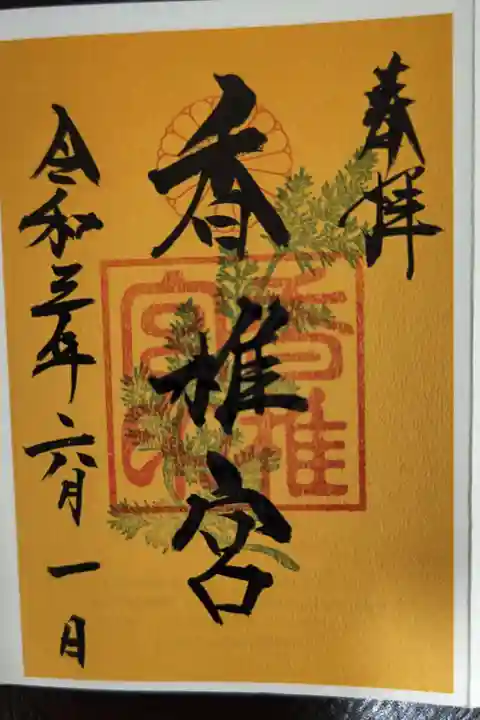 奉拝
香椎宮
令和三年六月一日